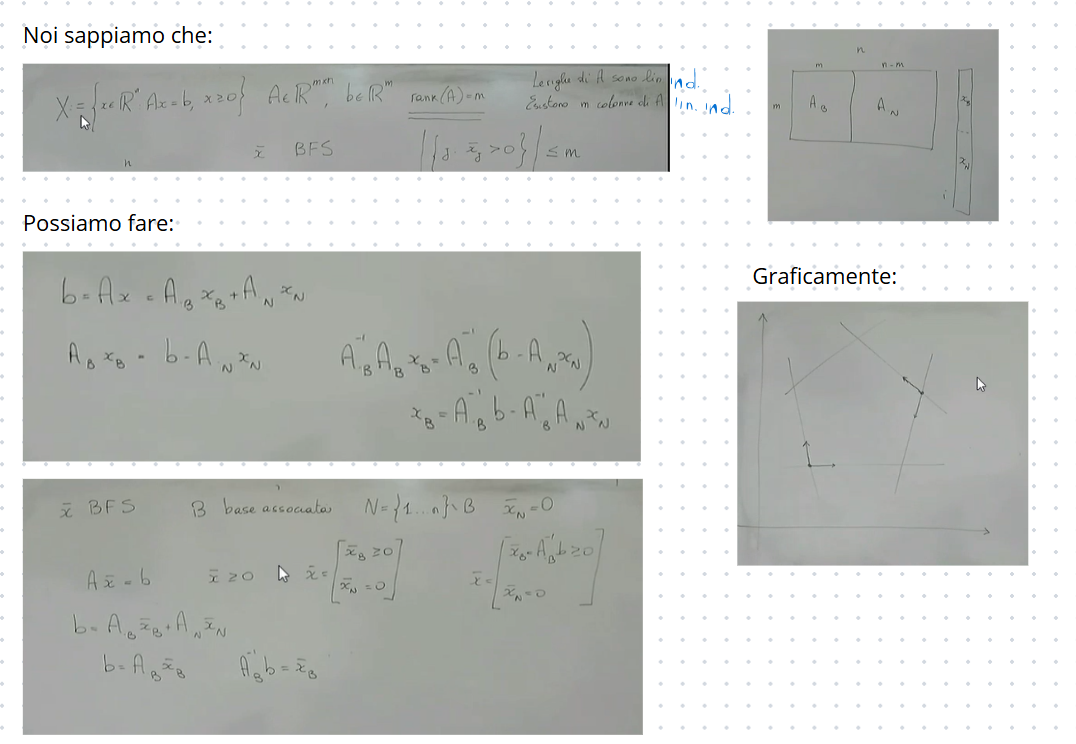 Noi sappiamo che:
X := {x ∈ ℝⁿ Ax = b, x ≥ 0} A ∈ ℝᵐˣⁿ, b ∈ ℝᵐ rank(A) = m
Le righe di A sono lin. ind.
Esistono m colonne di A lin. ind.
x̄ BFS |{j: x̄ⱼ > 0}| ≤ m
n
n
m n-m
m A_B A_N x_B
x_N
i
Possiamo fare:
b = Ax = A_B x_B + A_N x_N
A_B x_B = b - A_N x_N A_B⁻¹ A_B x_B = A_B⁻¹ (b - A_N x_N)
x_B = A_B⁻¹ b - A_B⁻¹ A_N x_N
Graficamente:
x̄ BFS B base associata N = {1...n} \ B x̄_N = 0
A x̄ = b x̄ ≥ 0 x̄ = [x̄_B ≥ 0 x̄_N = 0] x̄ = [x̄_B = A_B⁻¹ b ≥ 0 x̄_N = 0]
b = A_B x̄_B + A_N x̄_N
b = A_B x̄_B A_B⁻¹ b = x̄_B